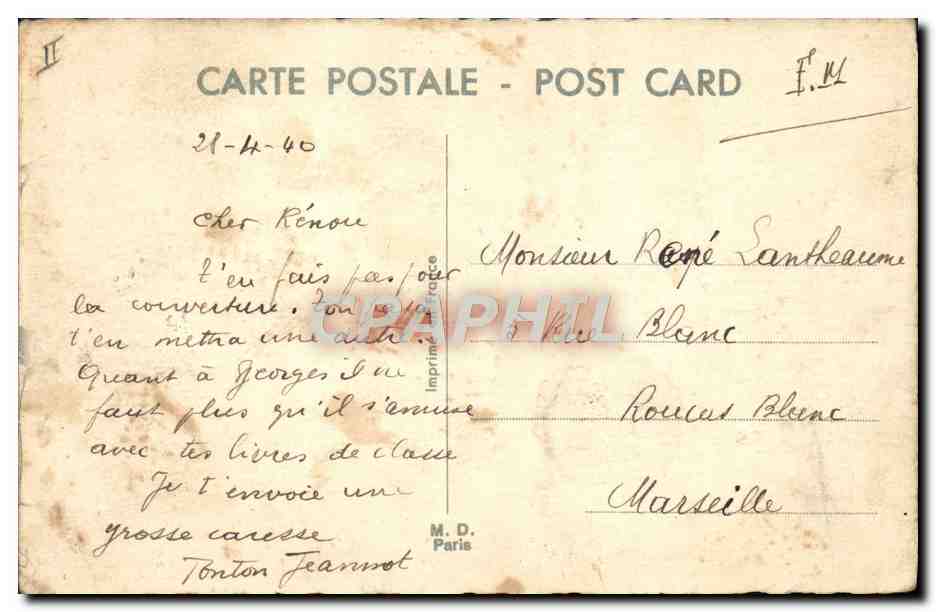 II
CARTE POSTALE - POST CARD
F.M
28-4-40
cher Rénou
t'en fais pas pour
la couverture. Ton papa
t'en mettra une autre.
Quant à Georges il ne
faut plus qu'il s'amuse
avec tes livres de classe
Je t'envoie une
grosse caresse
Tonton Jeannot
Imprimé en France
M. D.
Paris
Monsieur René Lantheaume
Rue Blanc
Roucas Blanc
Marseille
CPAPHIL